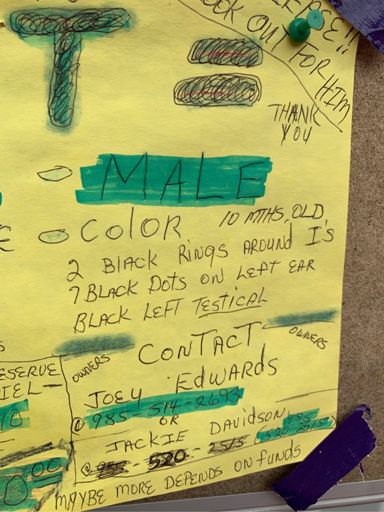 LOOK OUT FOR HIM
THANK
YOU
T
MALE
COLOR 10 MTHS, OLD
2 BlACK RINGS AROUND I's
7 BLACK DOTS ON LEFT EAR
BLACK LEFT TESTICAL
CONTACT
OWNERS
OWNERS
JOEY EDWARDS
@ 985-514-2693
OR
JACKIE DAVIDSON
@ 985-520-2515
MAYBE MORE DEPENDS ON fUNDS